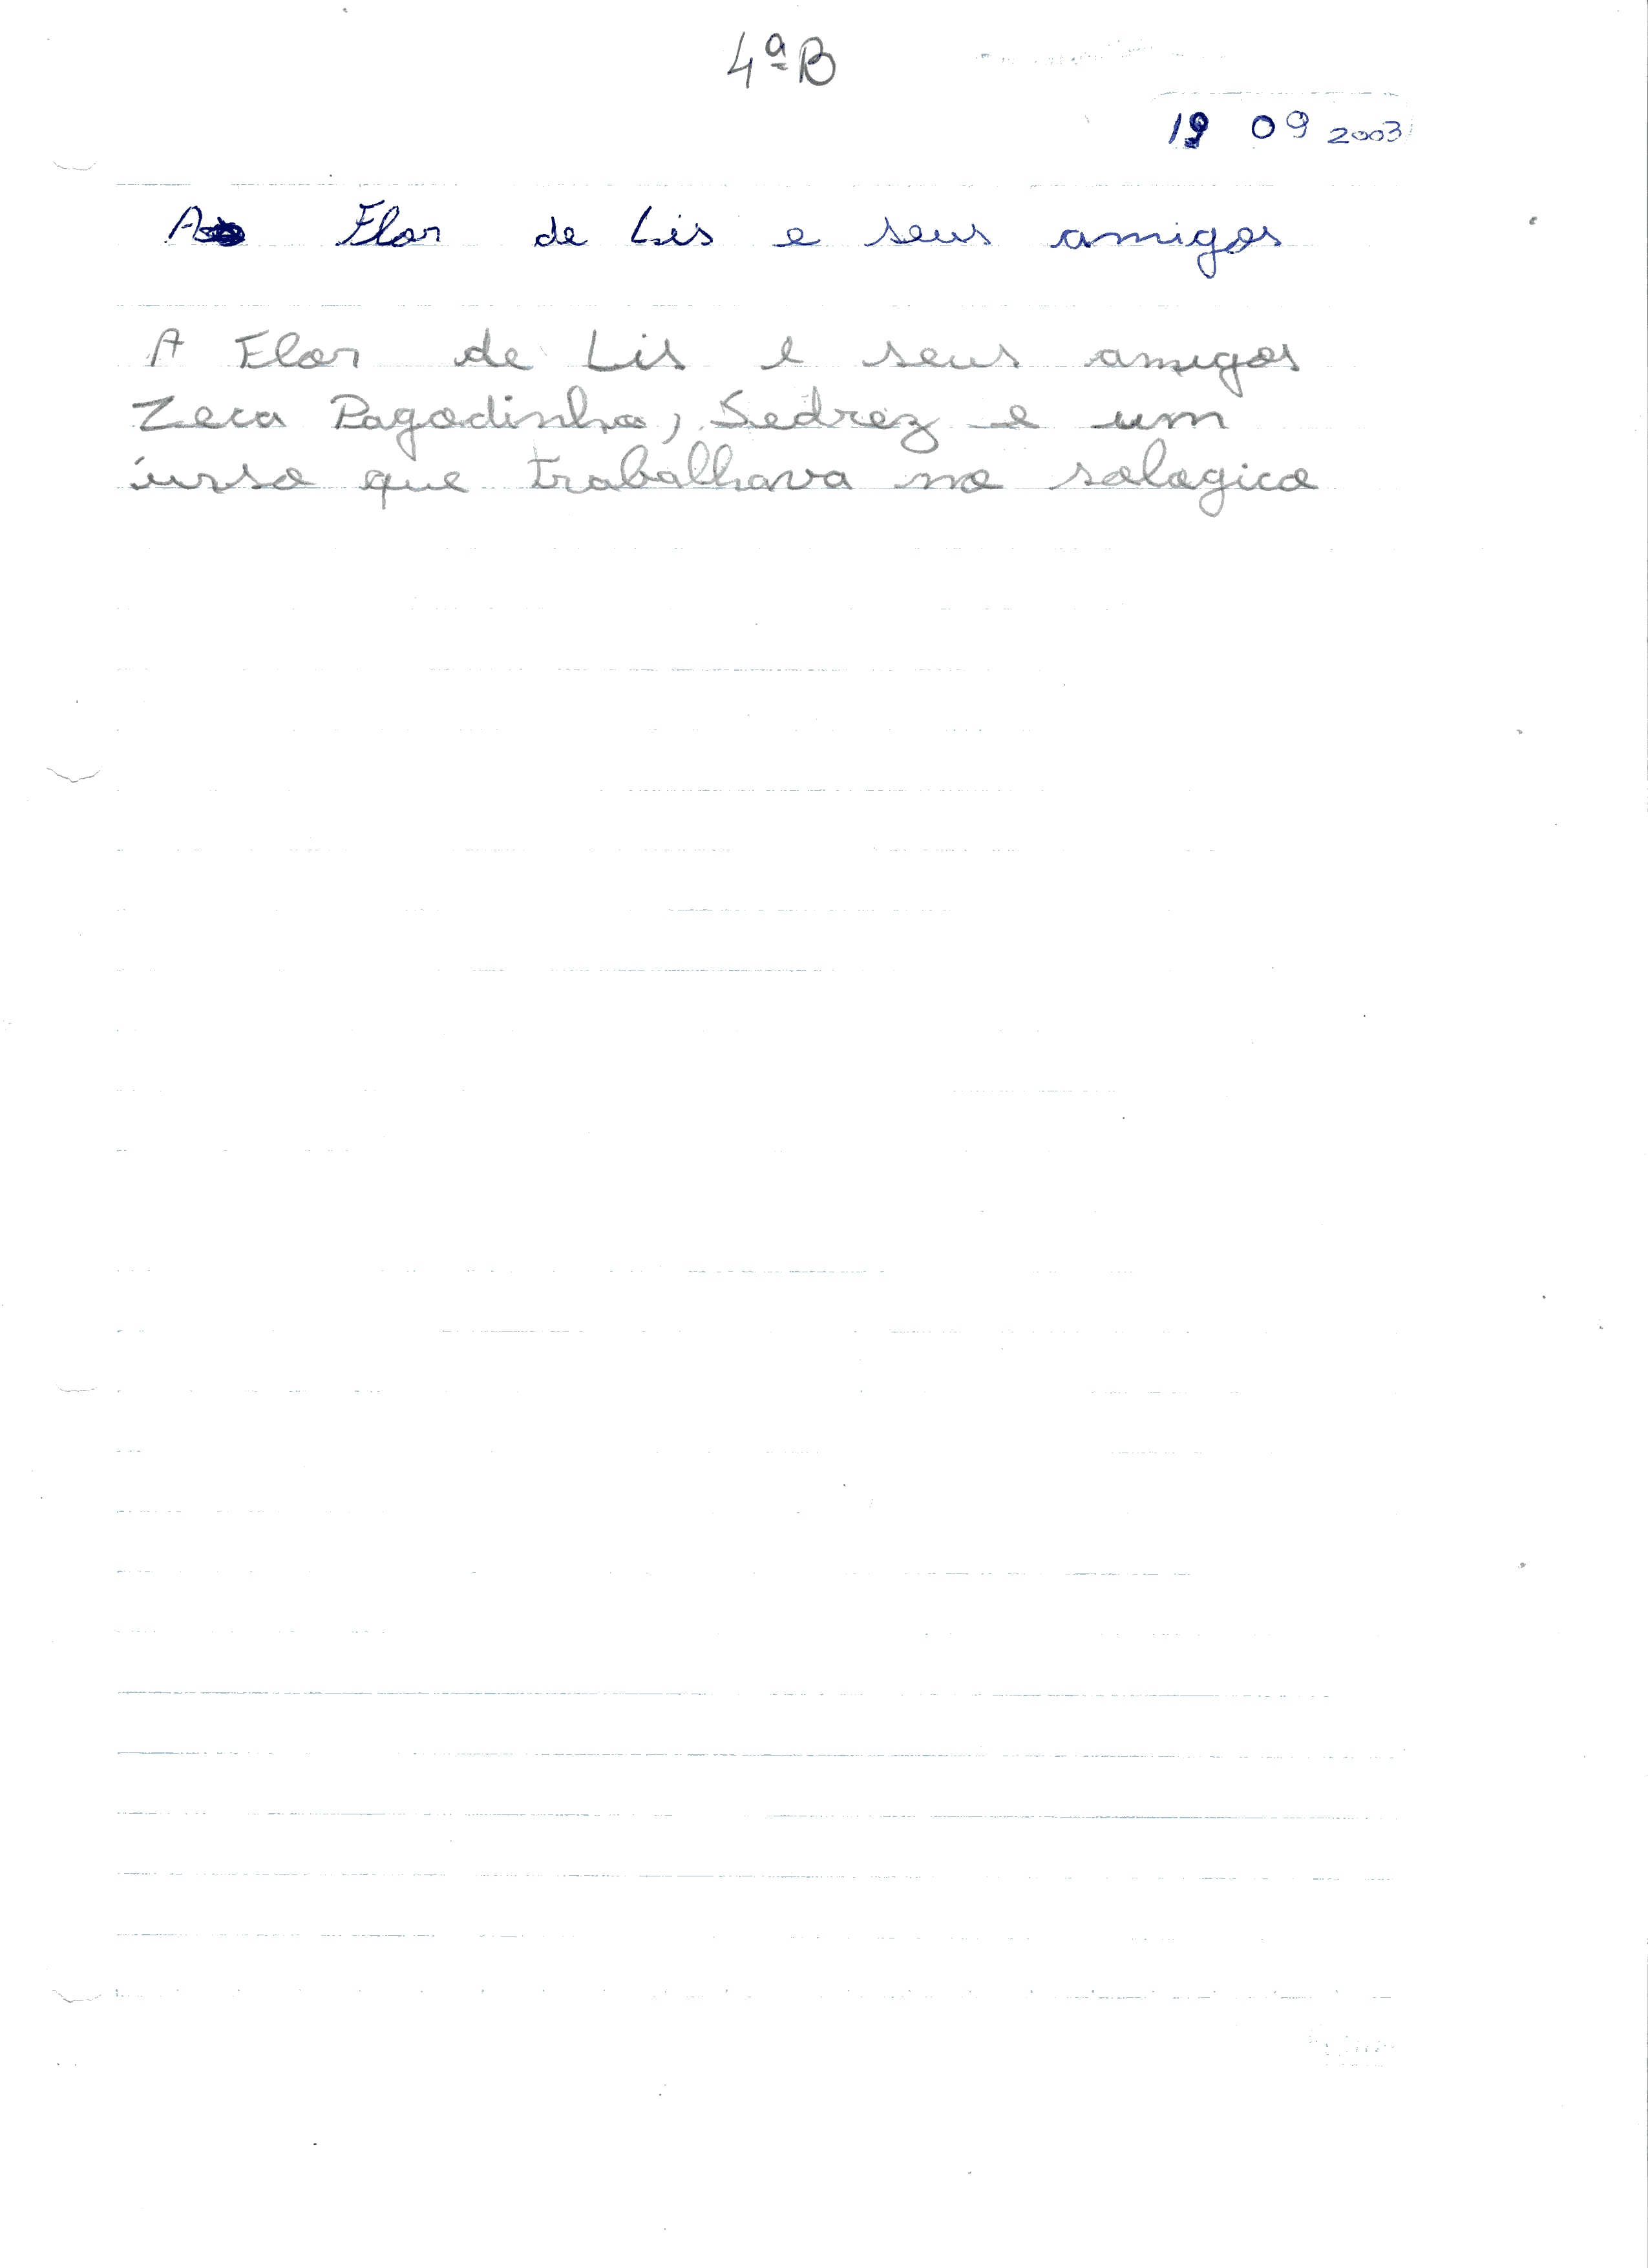 4ª B
19 09 2003
A Flor de Lis e seus amigos
A Flor de Lis e seus amigos
Zeca Pagodinho, Sedrez e um
urso que trabalhava no sologico